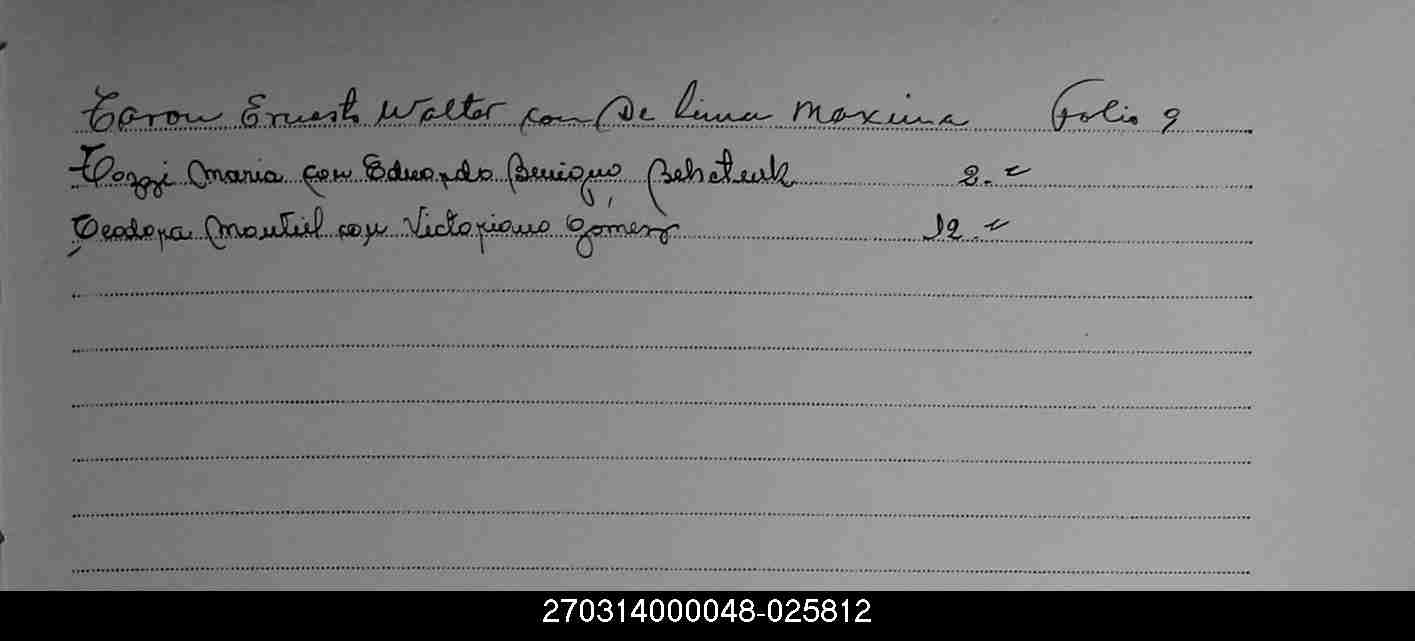 Taron Ernesto Walter con De Lima Maxima Folio 9
Tozzi Maria con Eduardo Benigno 2. "
Teodora Montiel con Victoriano Gómez 12. "
270314000048-025812